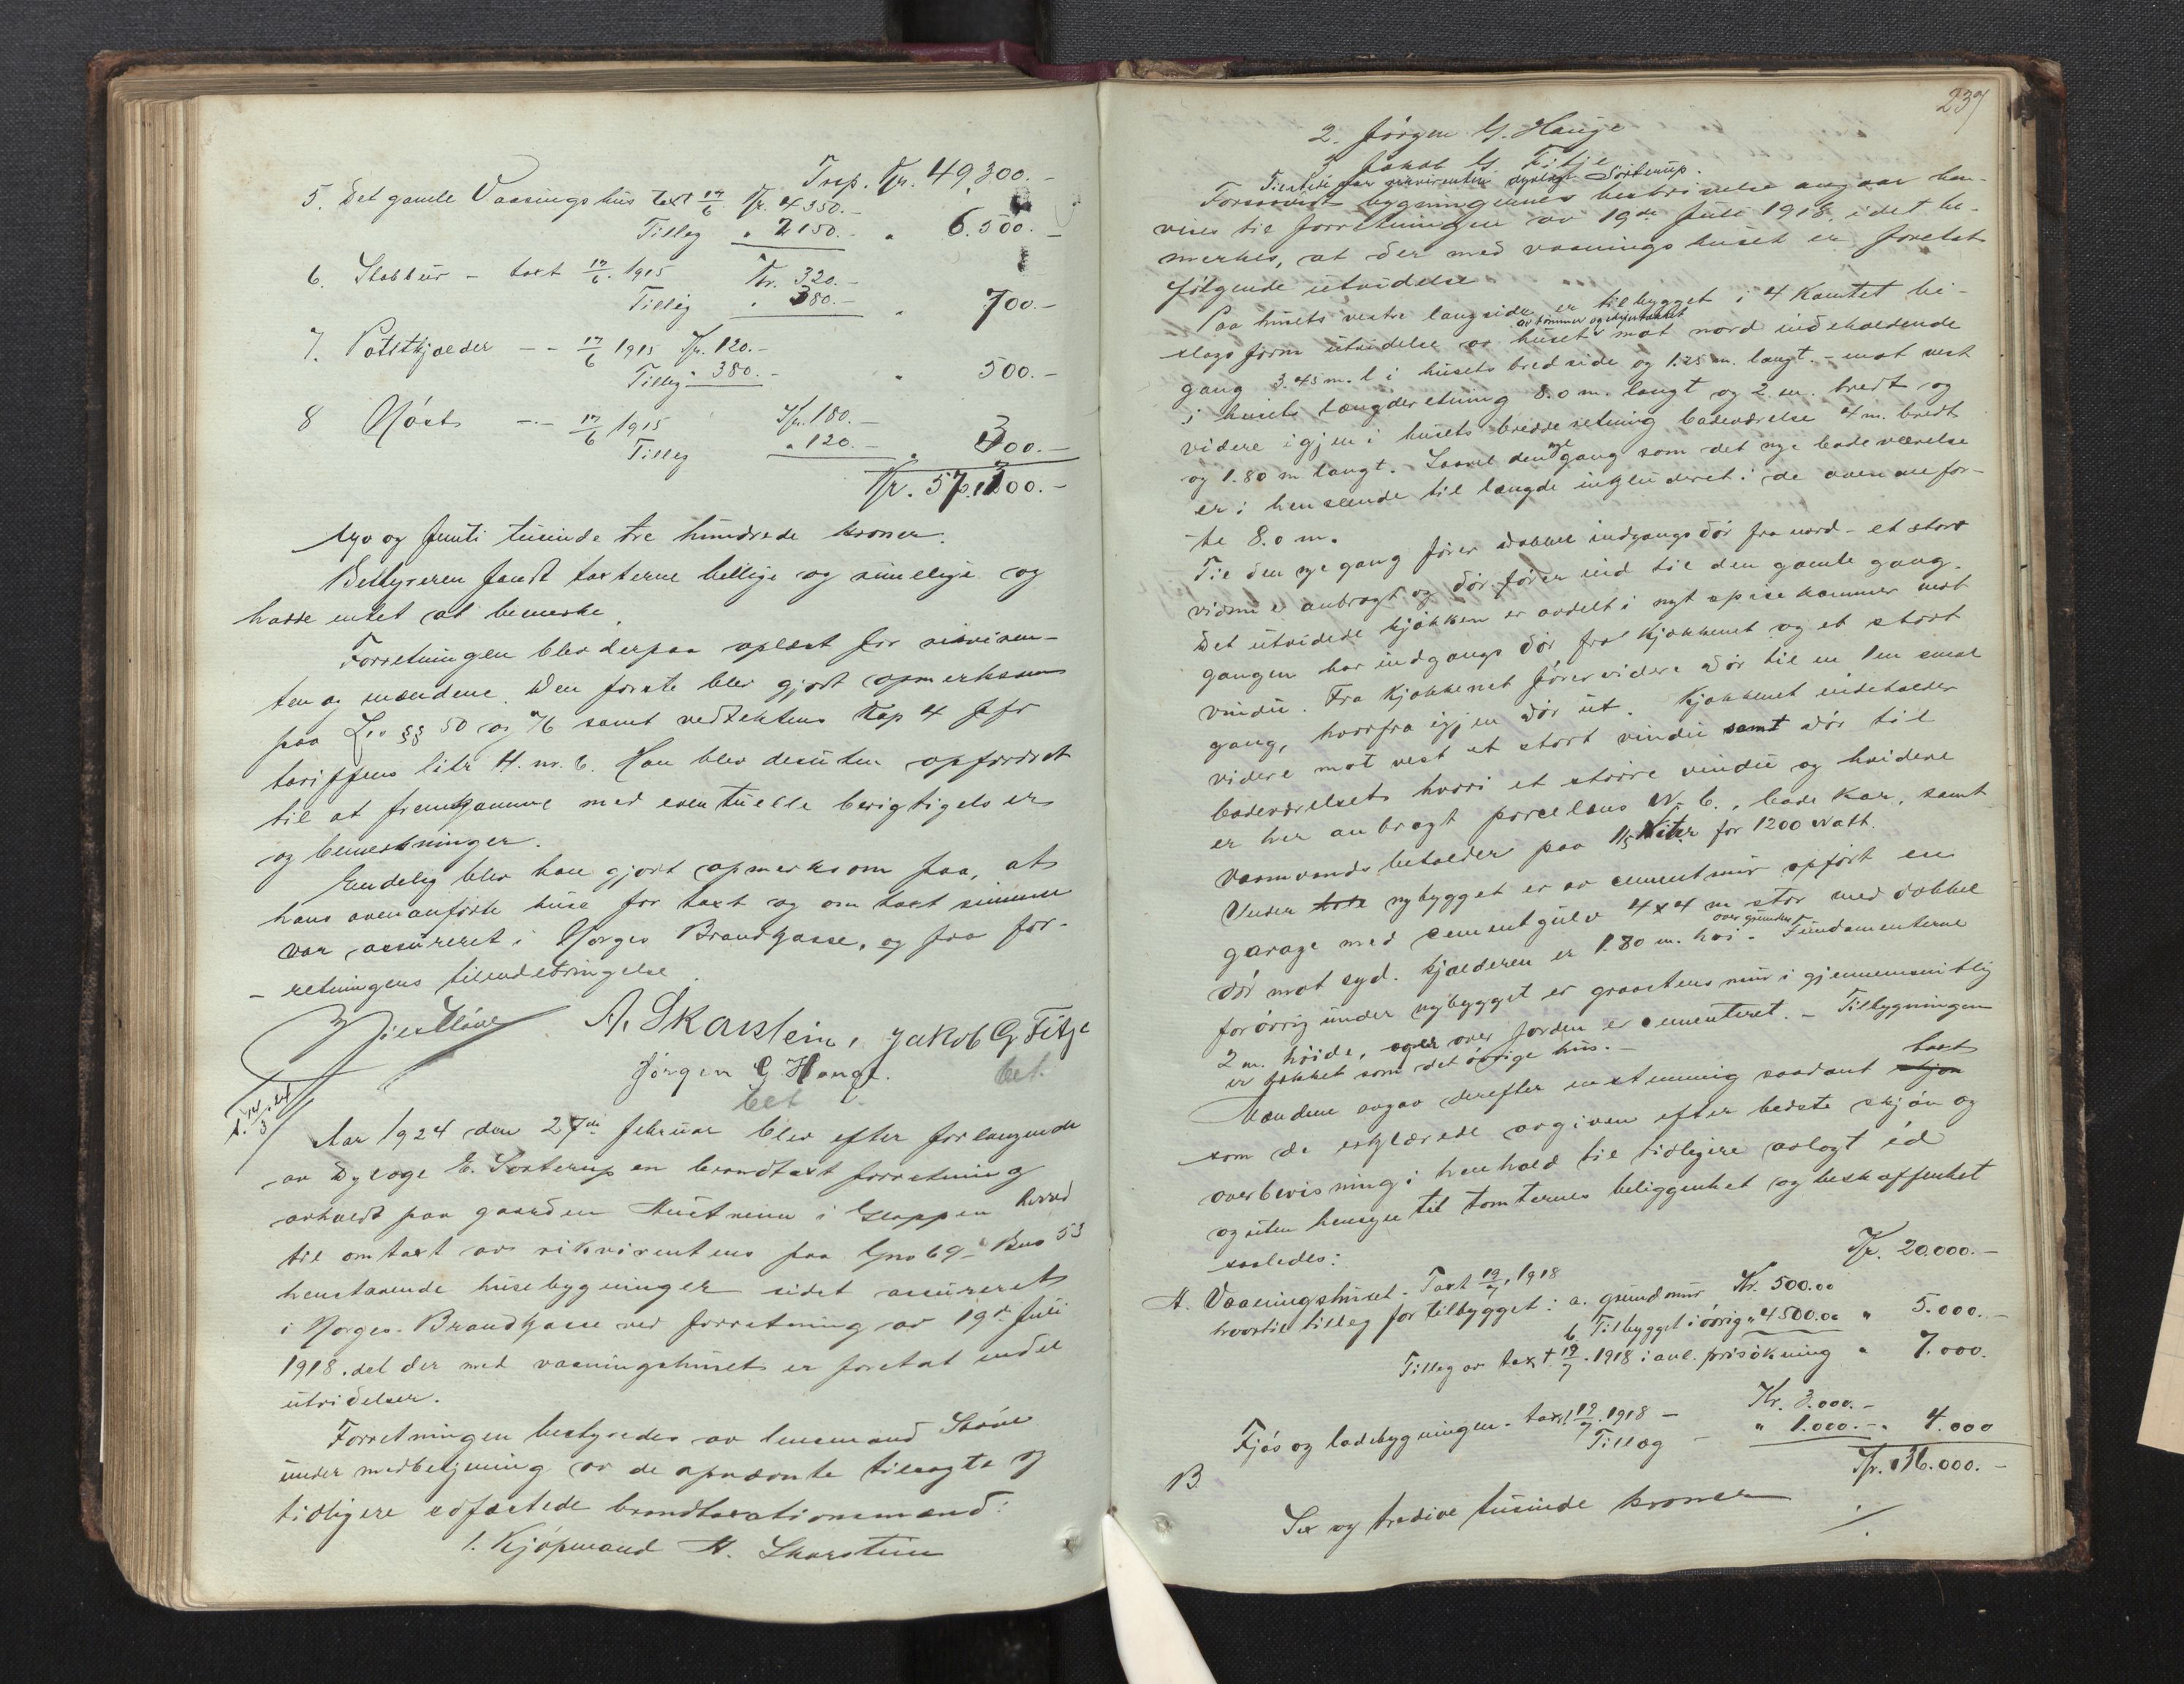 Trsp. Kr. 49,300.-
5. Det gamle Vaaningshus taxt 17/6 Kr. 4350.-
Tillæg " 2150.- " 6.500.-
6. Stabbur - taxt 17/6 1915 Kr. 320.-
Tillæg " 380.- " 700.-
7. Potetkjælder -"- 17/6 1915 Kr. 120.-
Tillæg " 380.- " 500.-
8 Nøst -"- 17/6 1915 Kr. 180.-
Tillæg " 120.- " 300.-
Kr. 57,300.-
syv og femti tusinde tre hundrede kroner.
Bestyreren fandt taxterne billige og rimelige og
hadde intet at bemerke.
Forretningen blev derpaa oplæst for rekviren-
ten og mændene. Den første blev gjort opmerksom
paa Lov §§ 50 og 76 samt vedtektens Kap 4 jfr
tariffens litr H. nr. 6. Han blev desuten opfordret
til at fremkomme med eventuelle berigtigelser
og bemerkninger.
Endelig blev han gjort opmerksom paa, at
hans ovenanførte huse for taxt og om taxt summen
var assureret i Norges Brandkasse, og fra for-
- retningens tilendebringelse.
A. Skarstein, Jakob G Fitje
Jørgen G Hauge. bet.
bet
14/3 24
Aar 1924 den 27de februar blev efter forlangende
av Dyrlæge E. Sorterup en brandtaxt forretning
avholdt paa gaarden Austreim i Gloppen herred
til omtaxt av rikvirentens paa Gno 69 - Bno 53
henstaaende husebygninger sidst assureret
i Norges Brandkasse ved forretning av 19de Juli
1918. det der med vaaningshuset er foretat endel
utvidelser.
Forretningen bestyredes av lensmand
under medbetjening av de opnævnte tilsagte og
tidligere edfæstede brandtaxationsmænd:
1. Kjøpmand A. Skarstein
239
2. Jørgen G. Hauge
3 Jakob G Fitje
Tilstede var rekvirenten dyrlæge Sorterup.
Forsaavidt bygningernes beskrivelse angaar hen-
vises til forretningen av 19de Juli 1918. idet be-
merkes, at der med vaanings huset er foretat
følgende utvidelse
Paa husets vestre langside er tilbygget i 4 kantet be-
slags form utvidelse av huset av tømmer mot nord indeholdende
gang 3.45 m. l i husets bredside og 1.25 m. langt. - mot vest
i husets længderetning 8.0 m. langt og 2. m. bredt og
videre igjen i husets bredde retning badeværelse 4 m. bredt
og 1.80 m langt. Saavel den nye gang som det nye badeværelse
er i henseende til længde inkluderet i de ovenanfør-
te 8.0 m.
Til den nye gang fører dobbel indgangsdør fra nord - et stort
vindu er anbragt og dør fører ind til den gamle gang.
Det utvidede kjøkken er avdelt i nyt spisekammer mot
gangen har indgangs dør fra kjøkkenet og et stort
vindu. Fra kjøkkenet fører videre dør til en 1 m smal
gang, hvorfra igjen dør ut. Kjøkkenet indeholder
videre mot vest et stort vindu samt dør til
badeværelset hvori et større vindu og hvidere
er her anbragt porcelæns W.C., bade kar, samt
varmvandsbeholder paa 115 liter for 1200 Watt.
Under nybygget er av cementmur opført en
garage med cementgulv 4x4 m stor med dobbel
dør mot syd. Kjælderen er 1.80 m. høi. over grunden Fundamenterne
forøvrig under nybygget er graastensmur i gjennemsnitlig
2 m. høide, over jorden er cementeret. - Tilbygningen
er tækket som det øvrige hus.-
Mændene avgav derefter enstemmig saadant skjøn taxt
som de erklærede avgiven efter bedste skjøn og
overbevisning i henhold til tidligere avlagt ed
og uten hensyn til tomternes beliggenhet og beskaffenhet
saaledes:
A. Vaaningshuset. Taxt 19/7 1918 Kr. 20.000.-
hvortil tillæg for tilbygget: a. grundmur Kr. 500.00
b. Tilbygget iøvrig " 4500.00 " 5.000.-
Tillæg av taxt 19/7 1918 i anl. prisøkning " 7.000.
B Fjøs og ladebygningen - taxt 19/7 1918 - Kr. 3.000.-
Tillæg - " 1.000.- " 4.000
Kr. 36.000.-
Sex og tredive tusinde kroner
./.